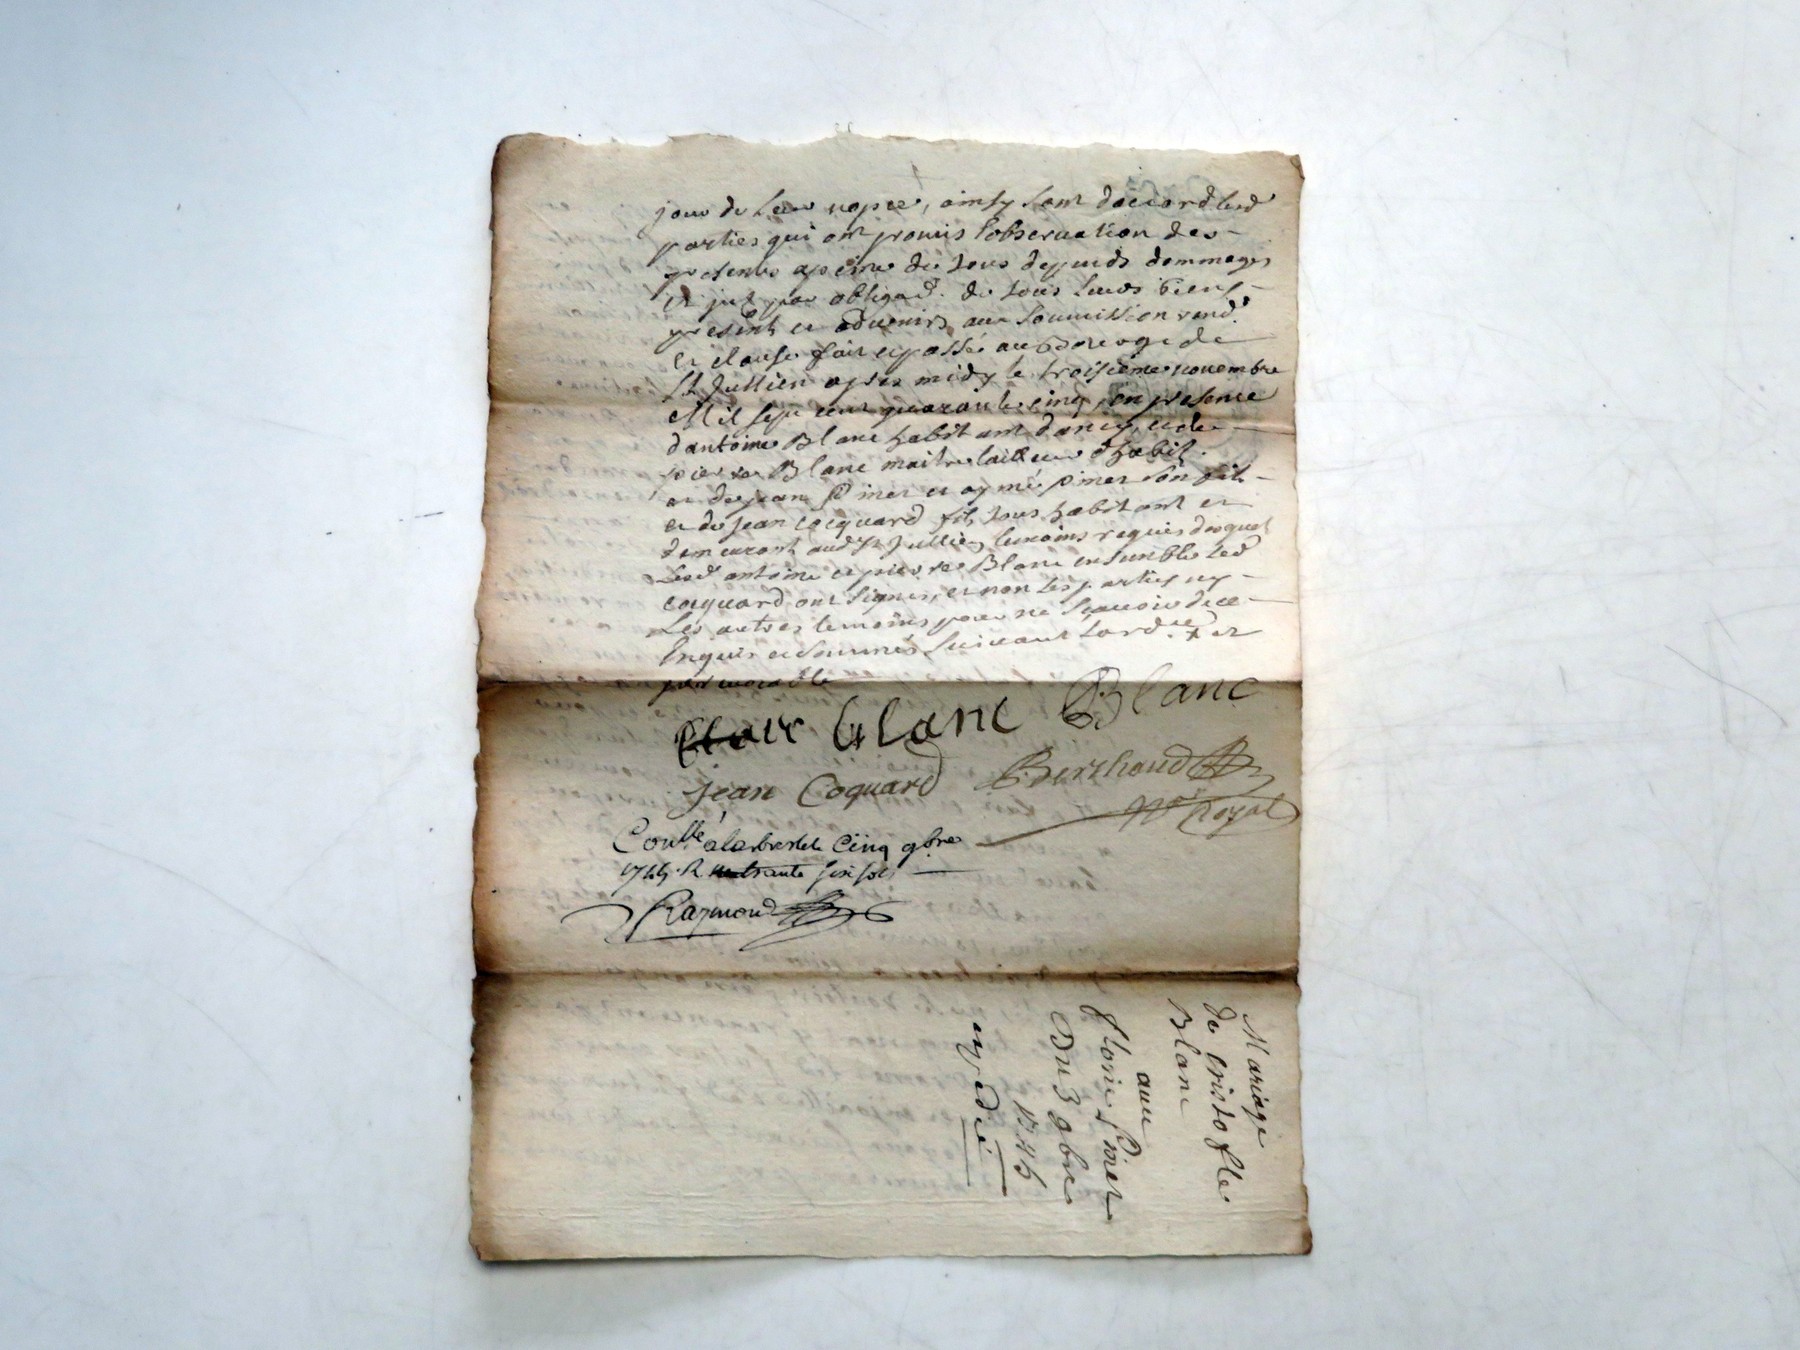 jour de leur nopce, ainsy sont daccord lesd
parties qui ont promis lobservation des
presentes a peine de tous depends dommages
et par obligaõn. de tous leurs biens
presents et advenirs avec soumission rend.
et clause fait et passé au bourg de
St Jullien apres midy le troisieme novembre
Mil sept cent quarante cinq, en presence
dantoine Blanc habitant et de
pierre Blanc maitre tailleur dhabit.
et de jean Pinet et aymé pinet son fils
et de jean cocquard fils tous habitant et
demeurant aud St Jullien temoins requis desquel
Lesd antoine et pierre Blanc ensemble led
cocquard ont signes, et non les parties ny
Les autres temoins pour ne scavoir de ce
Enquis et sommés suivant lord.ce et
blanc Blanc
jean Coquard Berthoud
no.re Royal
Conllé a larbresle le cinq 9bre
1745 R trente six sols
Raymond
Mariage
de cristofle
Blanc
avec
florie Pinet
Du 3 9bre
1745
expedié